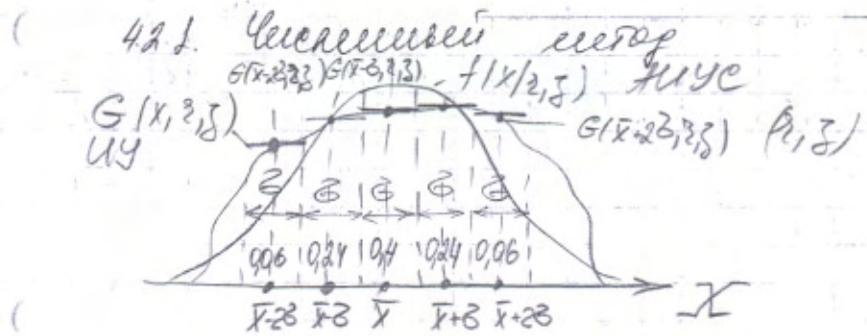 4.2.1. Численный метод
G(x̄-2σ,η,ξ) G(x̄-σ,η,ξ) f(x/η,ξ) АИУС
G(x,η,ξ) G(x̄+2σ,η,ξ) (η,ξ)
ИУ
σ σ σ σ σ
0,06 0,24 0,4 0,24 0,06
x̄-2σ x̄-σ x̄ x̄+σ x̄+2σ X